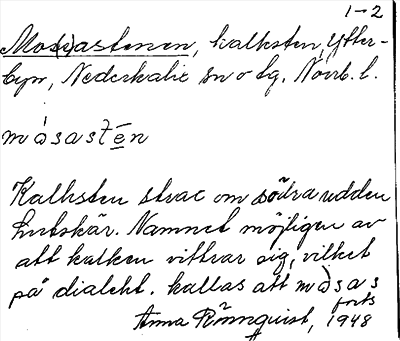 1-2
Mos(s)astenen, kalksten, Ytter-
byn, Nederkalix sn o tg, Norrb. l.
måsastēn
Kalksten strax om södra udden
Halskär. Namnet möjligen av
att kalken vittrar sig, vilket
på dialekt. kallas att måsas
forts
Anna Rönnquist, 1948